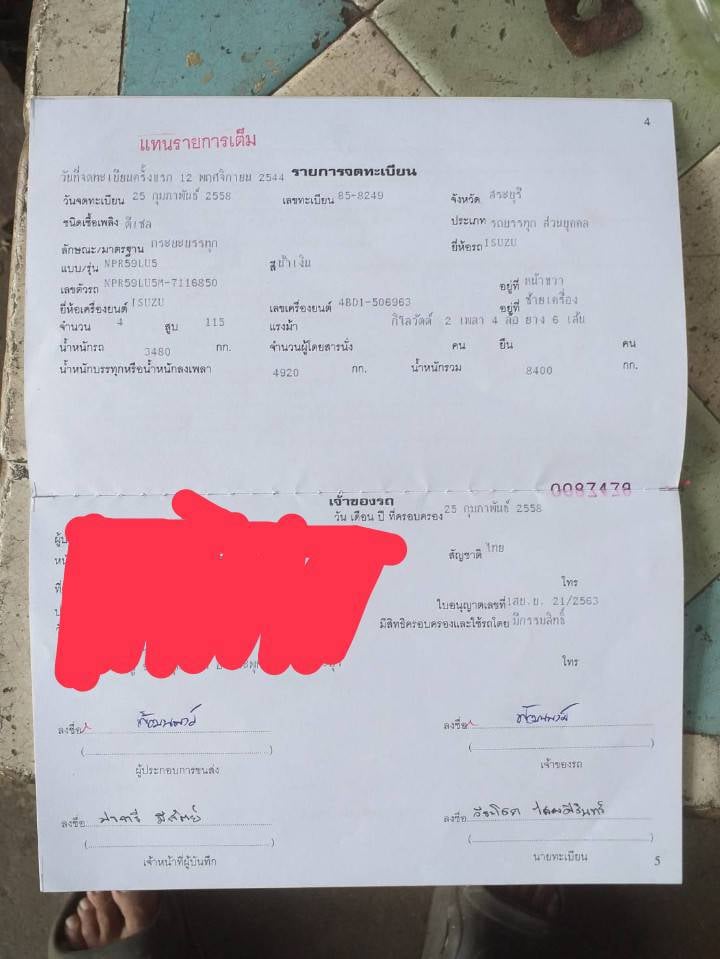 4
แทนรายการเต็ม
วันที่จดทะเบียนครั้งแรก 12 พฤศจิกายน 2544 รายการจดทะเบียน
วันจดทะเบียน 25 กุมภาพันธ์ 2558 เลขทะเบียน 85-8249 จังหวัด สระบุรี
ชนิดเชื้อเพลิง ดีเซล ประเภท รถบรรทุก ส่วนบุคคล
ลักษณะ/มาตรฐาน กระบะบรรทุก ยี่ห้อรถ ISUZU
แบบ/รุ่น NPR59LU5 สี น้ำเงิน
เลขตัวรถ NPR59LU5M-7116850 อยู่ที่ หน้าขวา
ยี่ห้อเครื่องยนต์ ISUZU เลขเครื่องยนต์ 4BD1-506963 อยู่ที่ ซ้ายเครื่อง
จำนวน 4 สูบ 115 แรงม้า กิโลวัตต์ 2 เพลา 4 ล้อ ยาง 6 เส้น
น้ำหนักรถ 3480 กก. จำนวนผู้โดยสารนั่ง คน ยืน คน
น้ำหนักบรรทุกหรือน้ำหนักลงเพลา 4920 กก. น้ำหนักรวม 8400 กก.
เจ้าของรถ
วัน เดือน ปี ที่ครอบครอง 25 กุมภาพันธ์ 2558
สัญชาติ ไทย
โทร
ใบอนุญาตเลขที่ 1สบ.บ. 21/2563
มีสิทธิครอบครองและใช้รถโดย มีกรรมสิทธิ์
โทร
ลงชื่อ ลงชื่อ
ผู้ประกอบการขนส่ง เจ้าของรถ
ลงชื่อ ลงชื่อ
เจ้าหน้าที่ผู้บันทึก นายทะเบียน
5